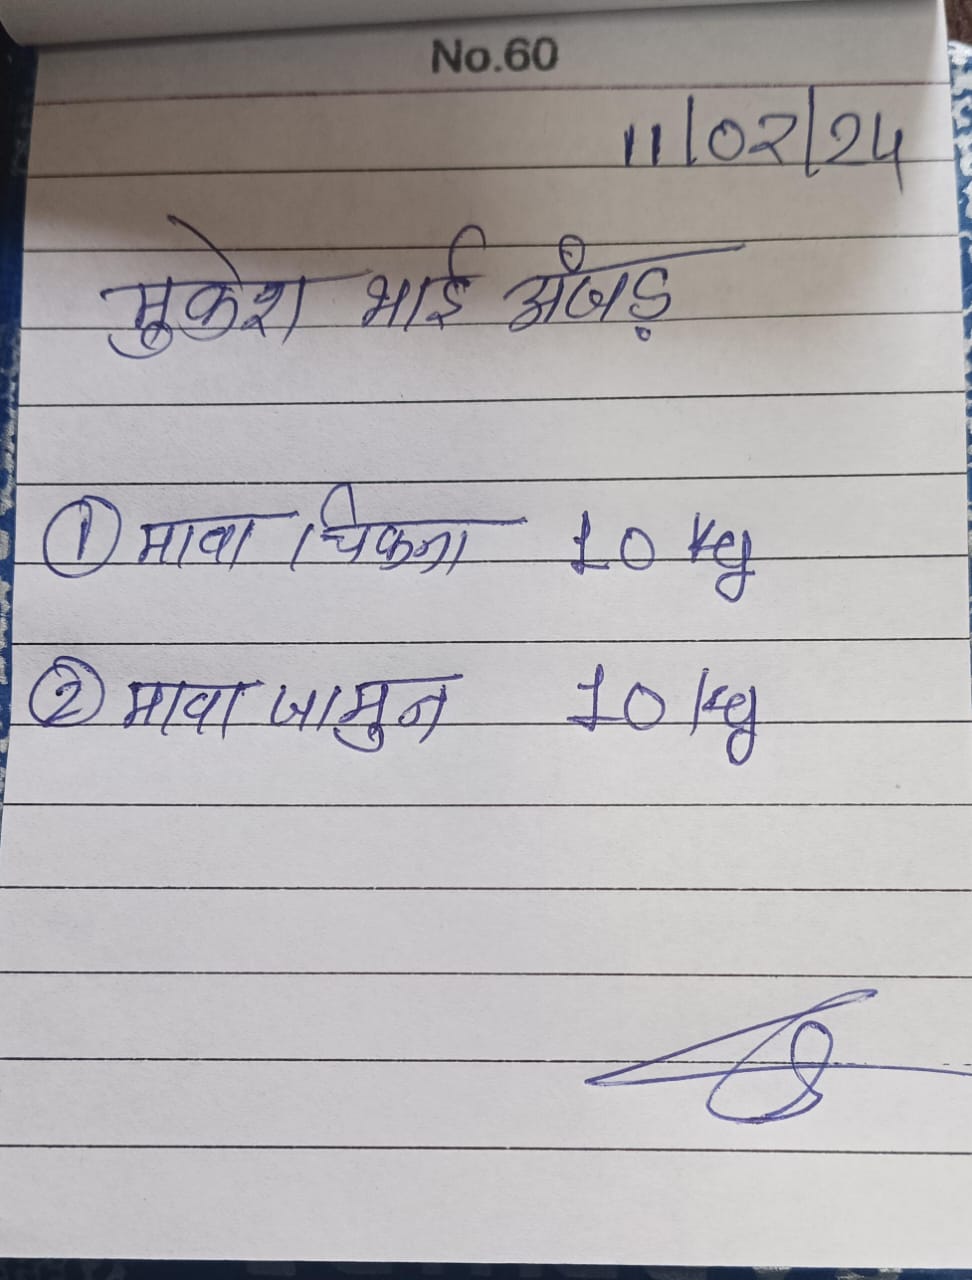 No.60
11/02/24
मुकेश भाई अंजड़
① मावा चिकना 10 kg
② मावा जामुन 10 kg